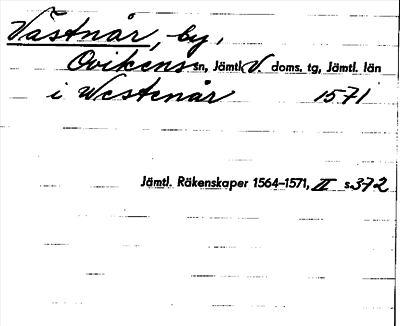 Västnår, by,
Ovikens sn, Jämtl. V. doms. tg, Jämtl. län
i Westenår 1571
Jämtl. Räkenskaper 1564–1571, II s. 372